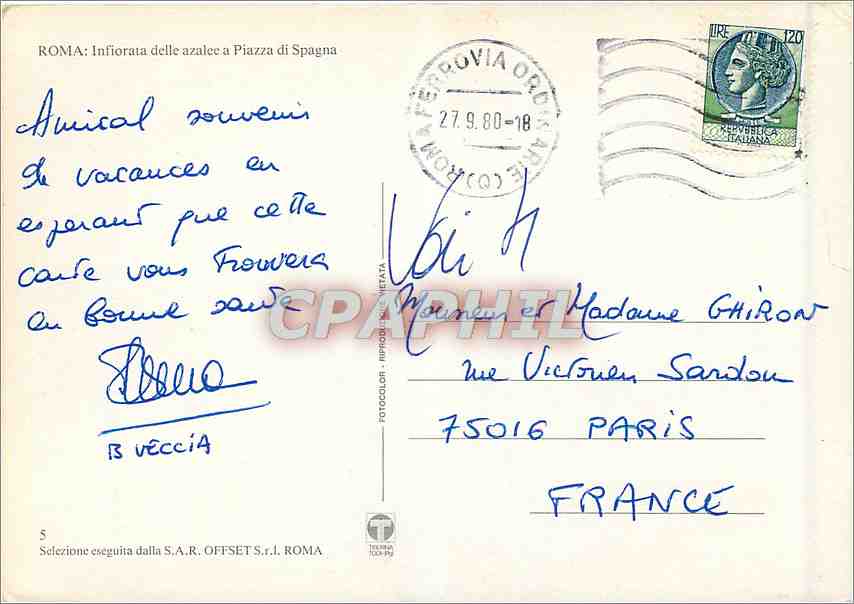 ROMA: Infiorata delle azalee a Piazza di Spagna
Amical souvenir
de vacances en
esperant que cette
carte vous trouvera
en bonne santé
B VECCIA
5
Selezione eseguita dalla S.A.R. OFFSET S.r.l. ROMA
FOTOCOLOR - RIPRODUZIONE VIETATA
ROMA FERROVIA ORDINARIE (O)
27.9.80-18
LIRE 120
REPVBBLICA
ITALIANA
Monsieur et Madame GHIRON
rue Victorien Sardou
75016 PARIS
FRANCE
CPAPHIL